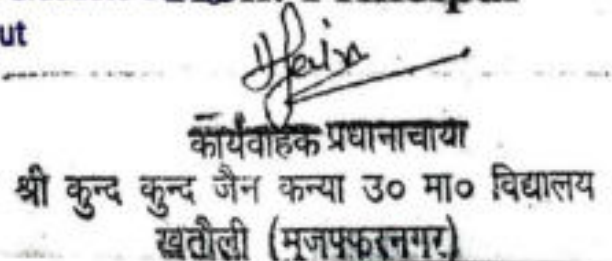 ut
कार्यवाहक प्रधानाचार्या
श्री कुन्द कुन्द जैन कन्या उ० मा० विद्यालय
खतौली (मुजफ्फरनगर)